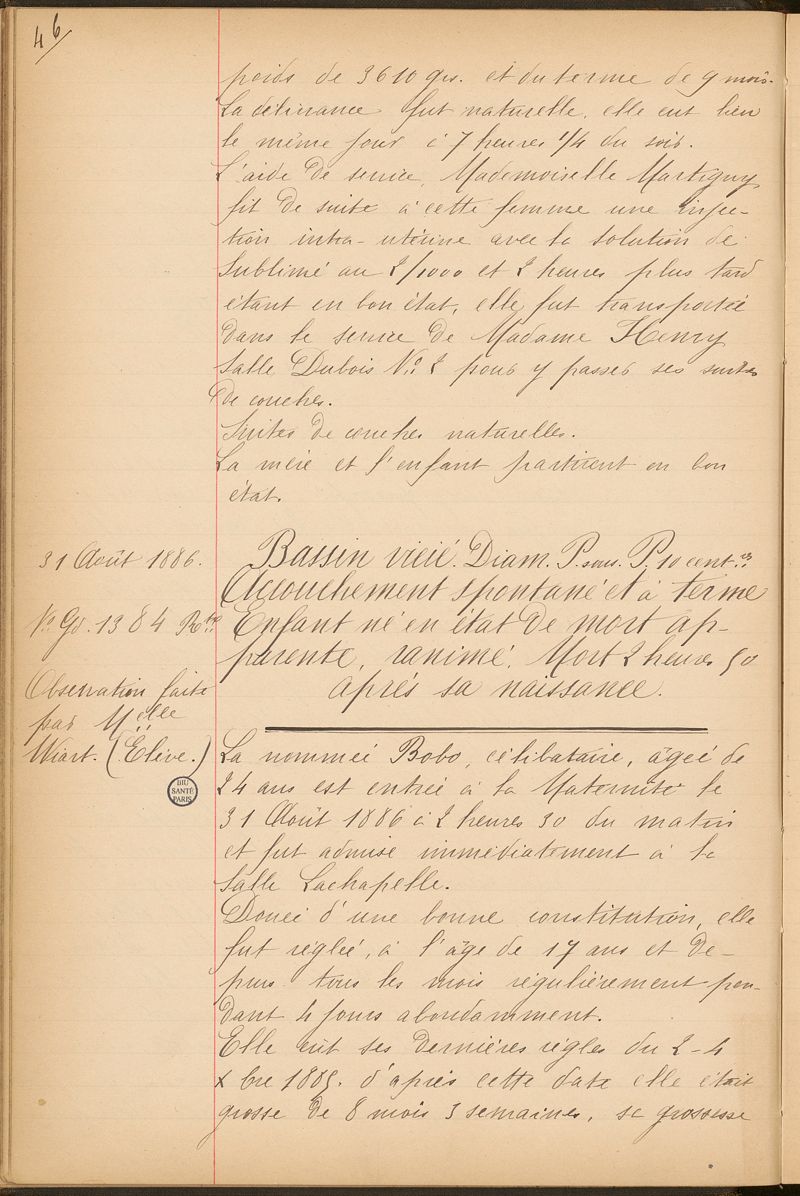 46
poids de 3610 grs. et du terme de 9 mois.
La délivrance fut naturelle, elle eut lieu
le même jour à 7 heures 1/4 du soir.
L'aide de service, Mademoiselle Martigny
fit de suite à cette femme une injec-
tion intra-utérine avec la solution de
Sublimé au 2/1000 et 2 heures plus tard
étant en bon état, elle fut transportée
dans le service de Madame Henry
Salle Dubois No 2 pour y passer ses suites
de couches.
Suites de couches naturelles.
La mère et l'enfant partirent en bon
état.
31 Août 1886.
No Gd. 1384 Rte
Observation faite
par Melle
Wiart. (Élève.)
BIU
SANTÉ
PARIS
Bassin vicié. Diam. P. sous. P. 10 cent.es
Accouchement spontané et à terme
Enfant né en état de mort ap-
parente, ranimé. Mort 2 heures 50
après sa naissance.
La nommée Bobo, célibataire, âgée de
24 ans est entrée à la Maternité le
31 Août 1886 à 2 heures 30 du matin
et fut admise immédiatement à la
Salle Lachapelle.
Douée d'une bonne constitution, elle
fut réglée, à l'âge de 17 ans et de-
puis tous les mois régulièrement pen-
dant 4 jours abondamment.
Elle eût ses dernières règles du 2-4
Xbre 1885. d'après cette date elle était
grosse de 8 mois 3 semaines, sa grossesse